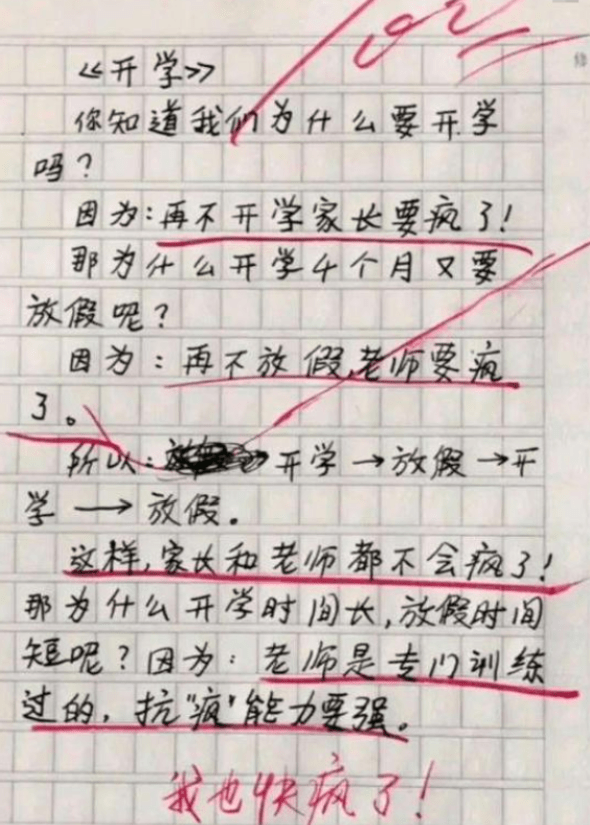 《开学》
你知道我们为什么要开学
吗？
因为：再不开学家长要疯了！
那为什么开学4个月又要
放假呢？
因为：再不放假，老师要疯
了。
所以：开学→放假→开
学→放假。
这样，家长和老师都不会疯了！
那为什么开学时间长，放假时间
短呢？因为：老师是专门训练
过的，抗“疯”能力要强。
我也快疯了！